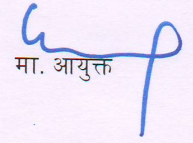 मा. आयुक्त